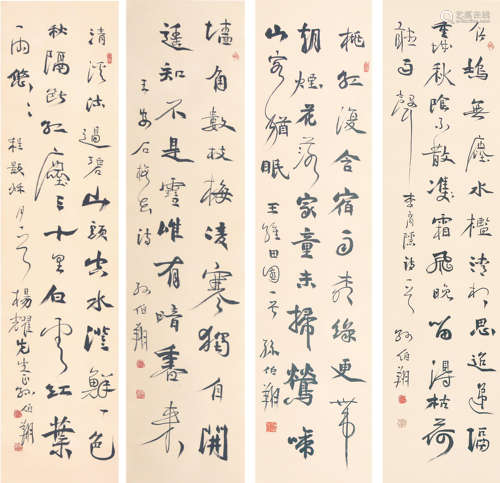 竹塢無塵水檻清相思迢遞隔
重城秋陰不散霜飛晚留得枯荷
聽雨聲 李商隱詩一首 孫伯翔
桃紅復含宿雨柳綠更帶
朝煙花落家童未掃鶯啼
山客猶眠 王維田園一首 孫伯翔
墻角數枝梅凌寒獨自開
遙知不是雪唯有暗香來
王安石梅花詩 孫伯翔
清溪流過碧山頭空水澄鮮一色
秋隔斷紅塵三十里白雲紅葉
兩悠〻 程顥秋月一首 楊耀先生正 孫伯翔